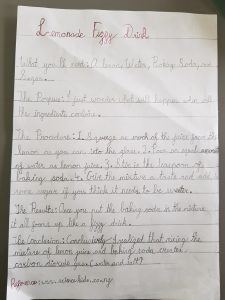 Lemonade Fizzy Drink
What you'll need: A lemon, Water, Baking Soda, and
Sugar.
The Purpose: I just wonder what will happen when all
the ingredients combine.
The Procedure: 1. Squeeze as much of the juice from the
lemon as you can into the glass. 2. Pour an equal amount
of water as lemon juice. 3. Stir in the teaspoon of
baking soda. 4. Give the mixture a taste and add in
some sugar if you think it needs to be sweeter.
The Results: Once you put the baking soda in the mixture
it all foams up like a fizzy drink.
The Conclusion: Conclusively I realized that mixing the
mixture of lemon juice and baking soda creates
carbon dioxide gas